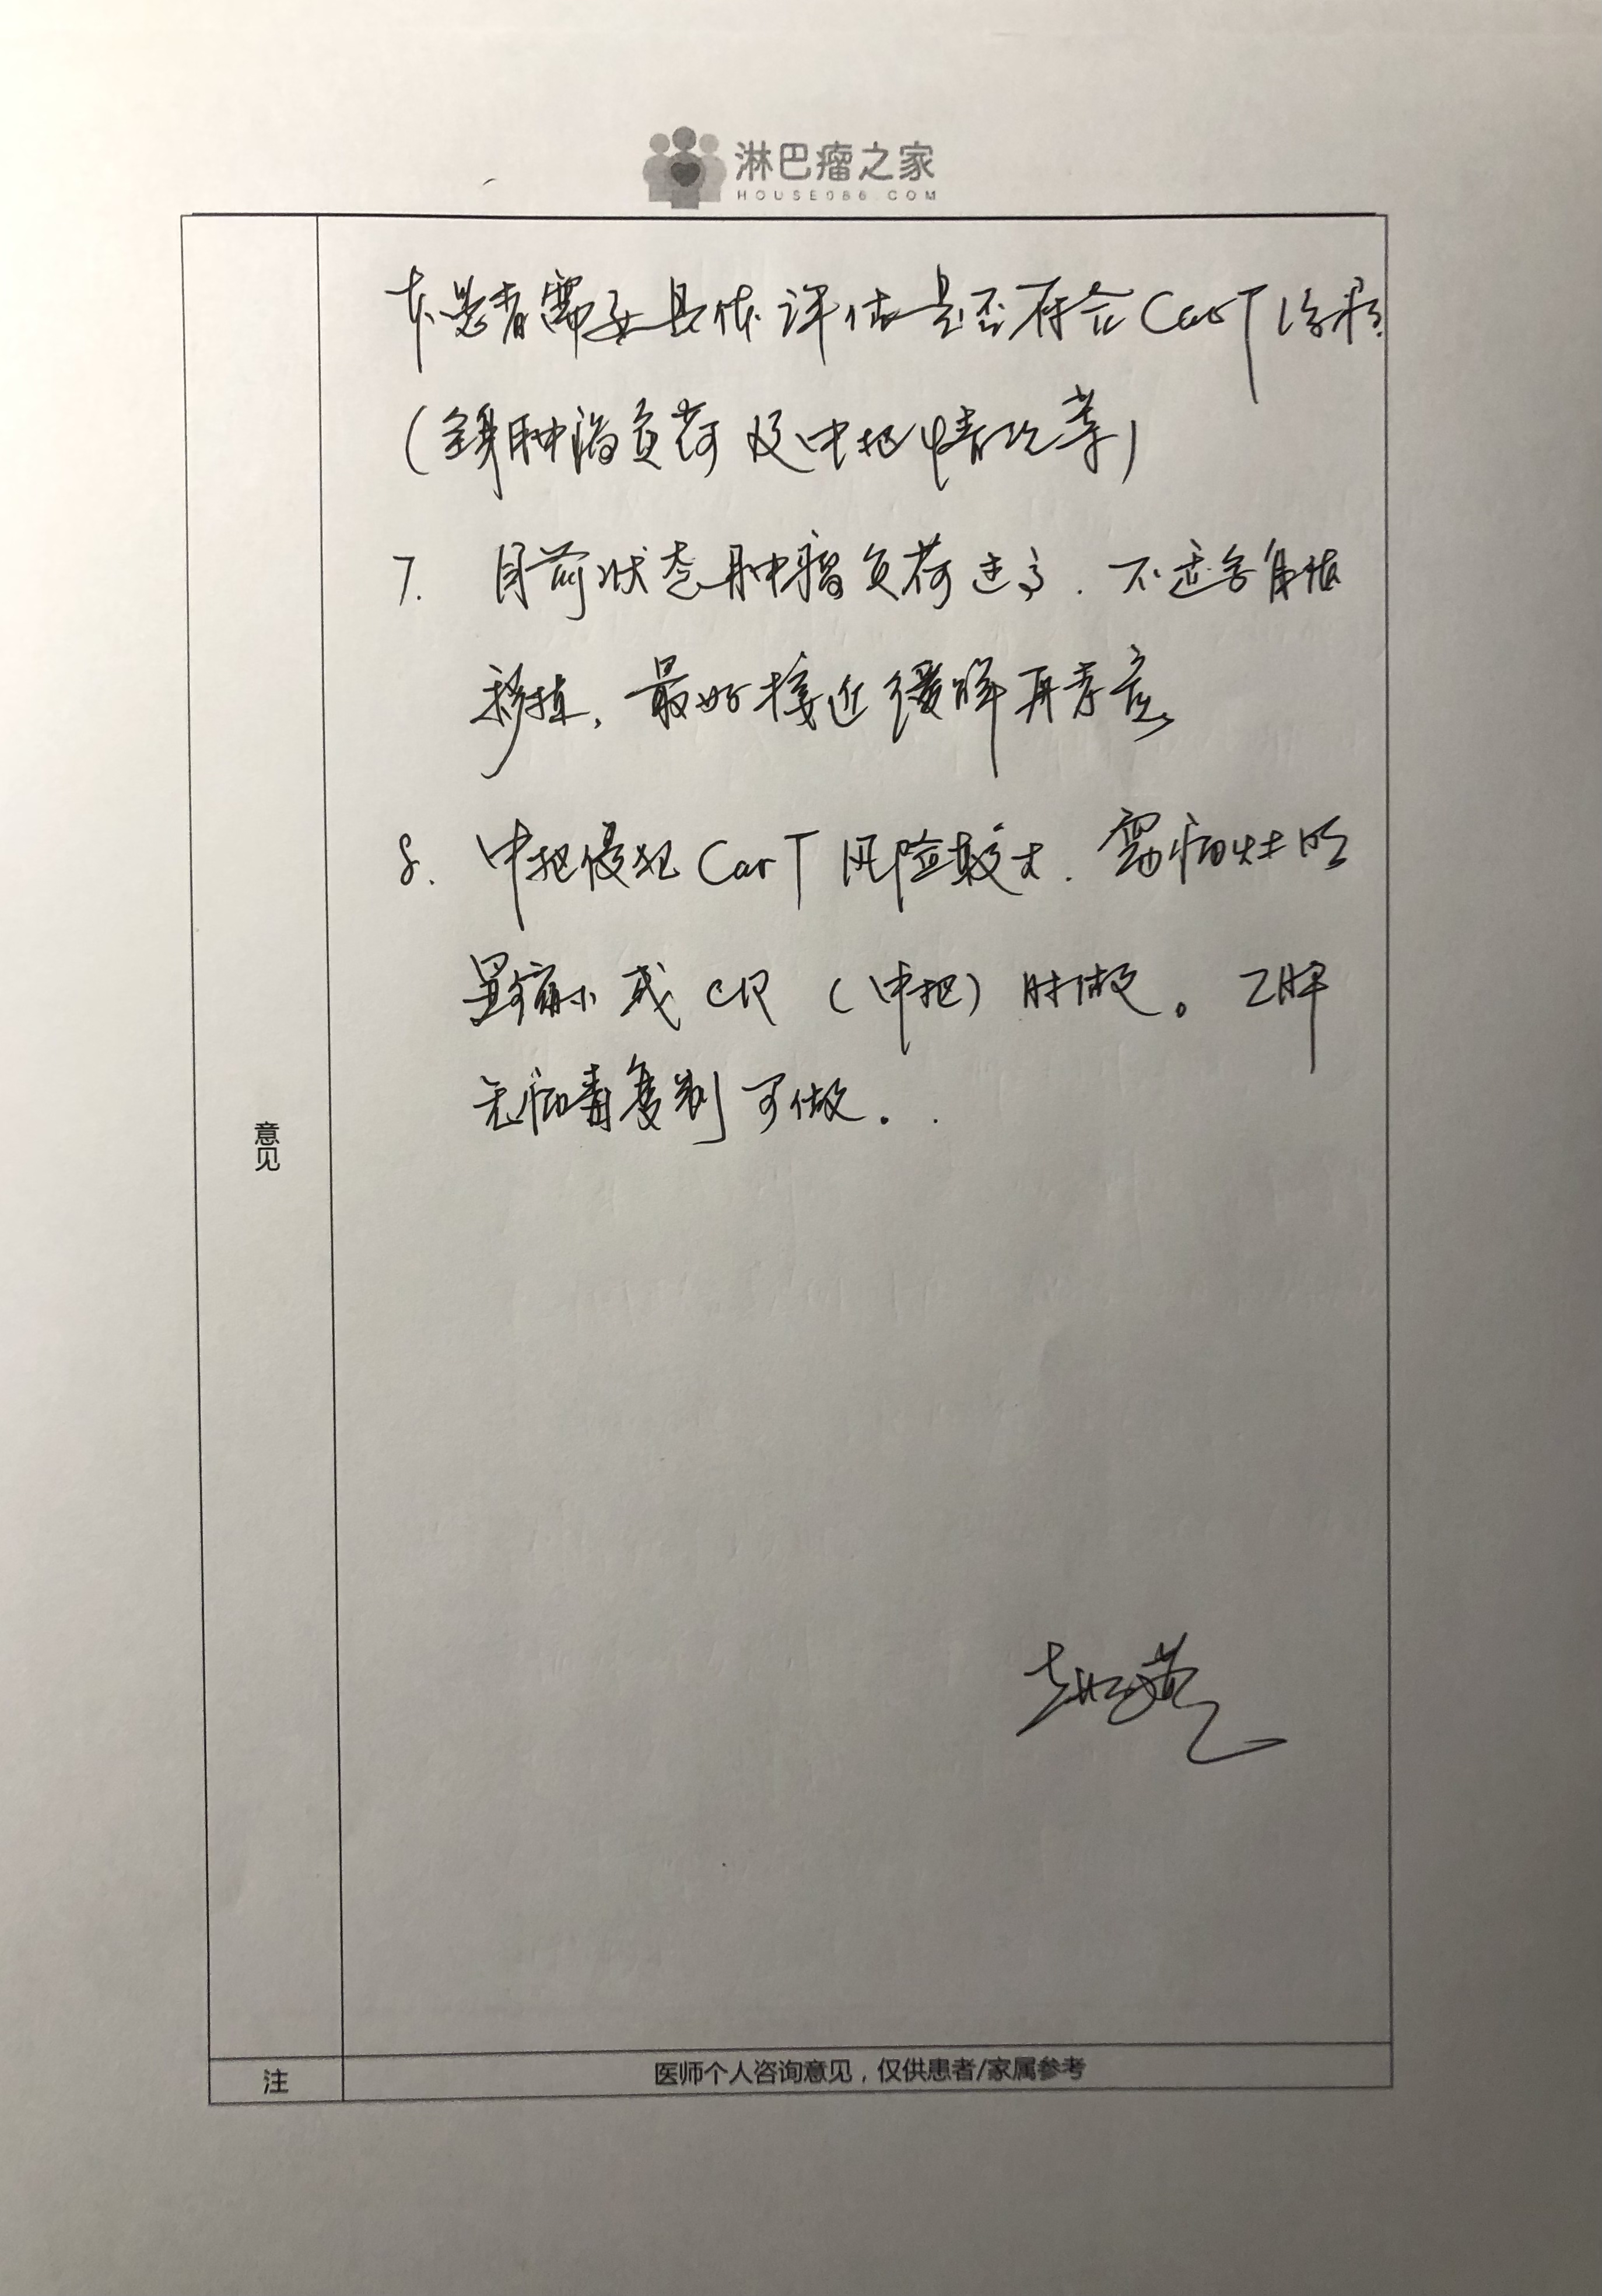 淋巴瘤之家
HOUSE086.COM
本患者需要具体评估是否符合CarT治疗
(全身肿瘤负荷及中枢情况等)
7. 目前状态肿瘤负荷过高. 不适合自体
移植, 最好接近缓解再考虑
8. 中枢侵犯CarT风险较大. 需病灶明
显缩小或CR (中枢) 时做。乙肝
无病毒复制可做.
意见
注
医师个人咨询意见，仅供患者/家属参考